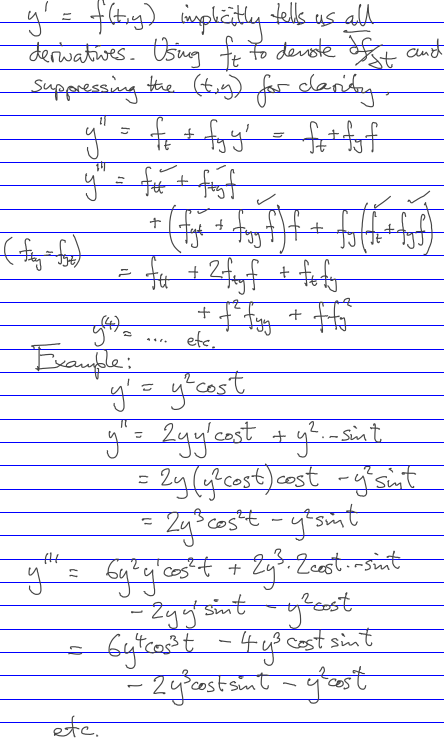 y' = f(t,y) implicitly tells us all
derivatives. Using f_t to denote ∂f/∂t and
suppressing the (t,y) for clarity,
y'' = f_t + f_y y' = f_t + f_y f
y''' = f_tt + f_ty f
+ (f_yt + f_yy f)f + f_y(f_t + f_y f)
(f_ty = f_yt)
= f_tt + 2f_ty f + f_t f_y
+ f² f_yy + f f_y²
y⁽⁴⁾ = .... etc.
Example:
y' = y² cos t
y'' = 2yy' cos t + y² · -sin t
= 2y(y² cos t) cos t - y² sin t
= 2y³ cos² t - y² sin t
y''' = 6y² y' cos² t + 2y³ · 2cos t · -sin t
- 2yy' sin t - y² cos t
= 6y⁴ cos³ t - 4y³ cos t sin t
- 2y³ cos t sin t - y² cos t
etc.